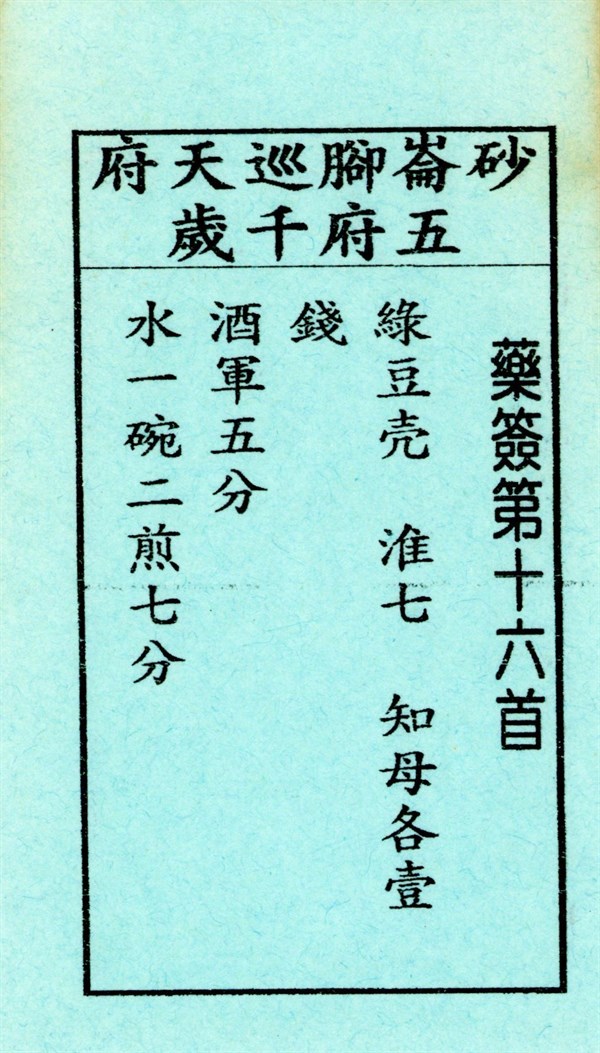 砂崙腳巡天府
五府千歲
藥簽第十六首
綠豆壳 淮七 知母各壹
錢
酒軍五分
水一碗二煎七分